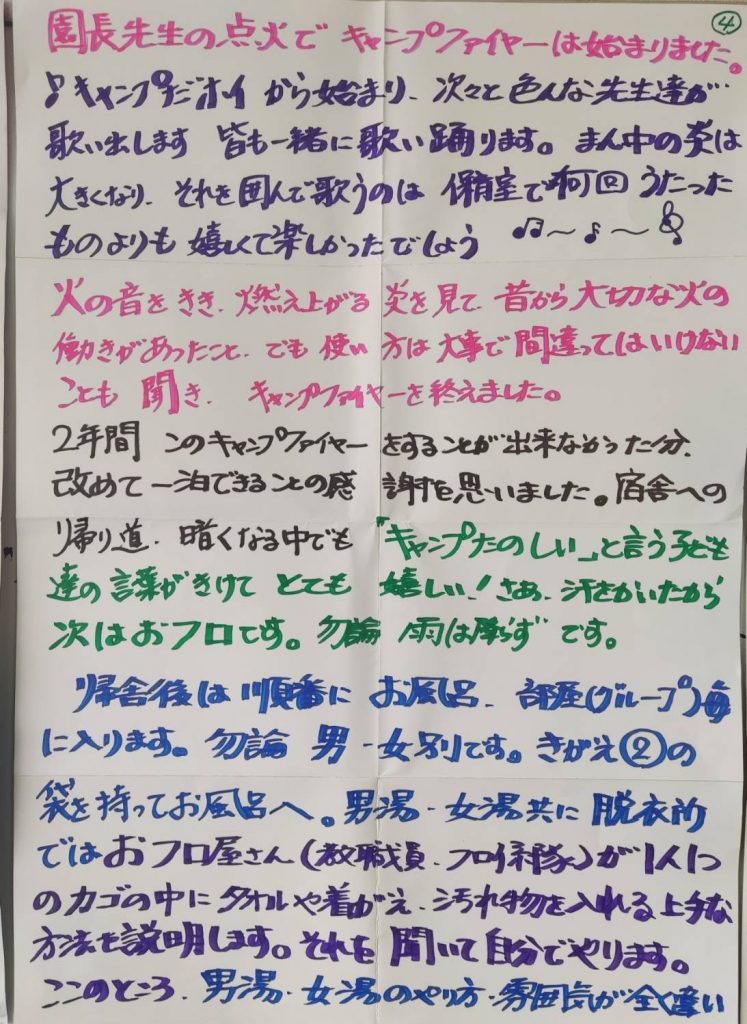 ④
園長先生の点火で キャンプファイヤーは始まりました。
♪キャンプだホイ から始まり、次々と色んな先生達が…
歌い出します 皆も一緒に歌い踊ります。まん中の炎は
大きくなり、それを囲んで歌うのは 保育室で何回うたった
ものよりも 嬉しくて楽しかったでしょう ♫〜♪〜𝄞
火の音をきき、燃え上がる炎を見て 昔から大切な火の
働きがあったこと、でも使い方は大事で間違ってはいけない
ことも 聞き、キャンプファイヤーを終えました。
2年間 このキャンプファイヤーをすることが出来なかった分、
改めて一泊できることの感謝を思いました。宿舎への
帰り道、暗くなる中でも 「キャンプたのしい」と言う子ども
達の言葉がきけて とても 嬉しい!さあ、汗をかいたから
次はおフロです。勿論 雨は降らず です。
帰舎後は 順番に お風呂、部屋(グループ)毎
に入ります。勿論 男・女別です。きがえ②の
袋を持ってお風呂へ。男湯・女湯共に 脱衣所
ではおフロ屋さん(教職員、フロ係隊)が1人1つ
のカゴの中にタオルや着がえ、汚れ物を入れる上手な
方法を説明します。それを 聞いて自分でやります。
ここのところ、男湯・女湯のやり方・雰囲気が全く違い